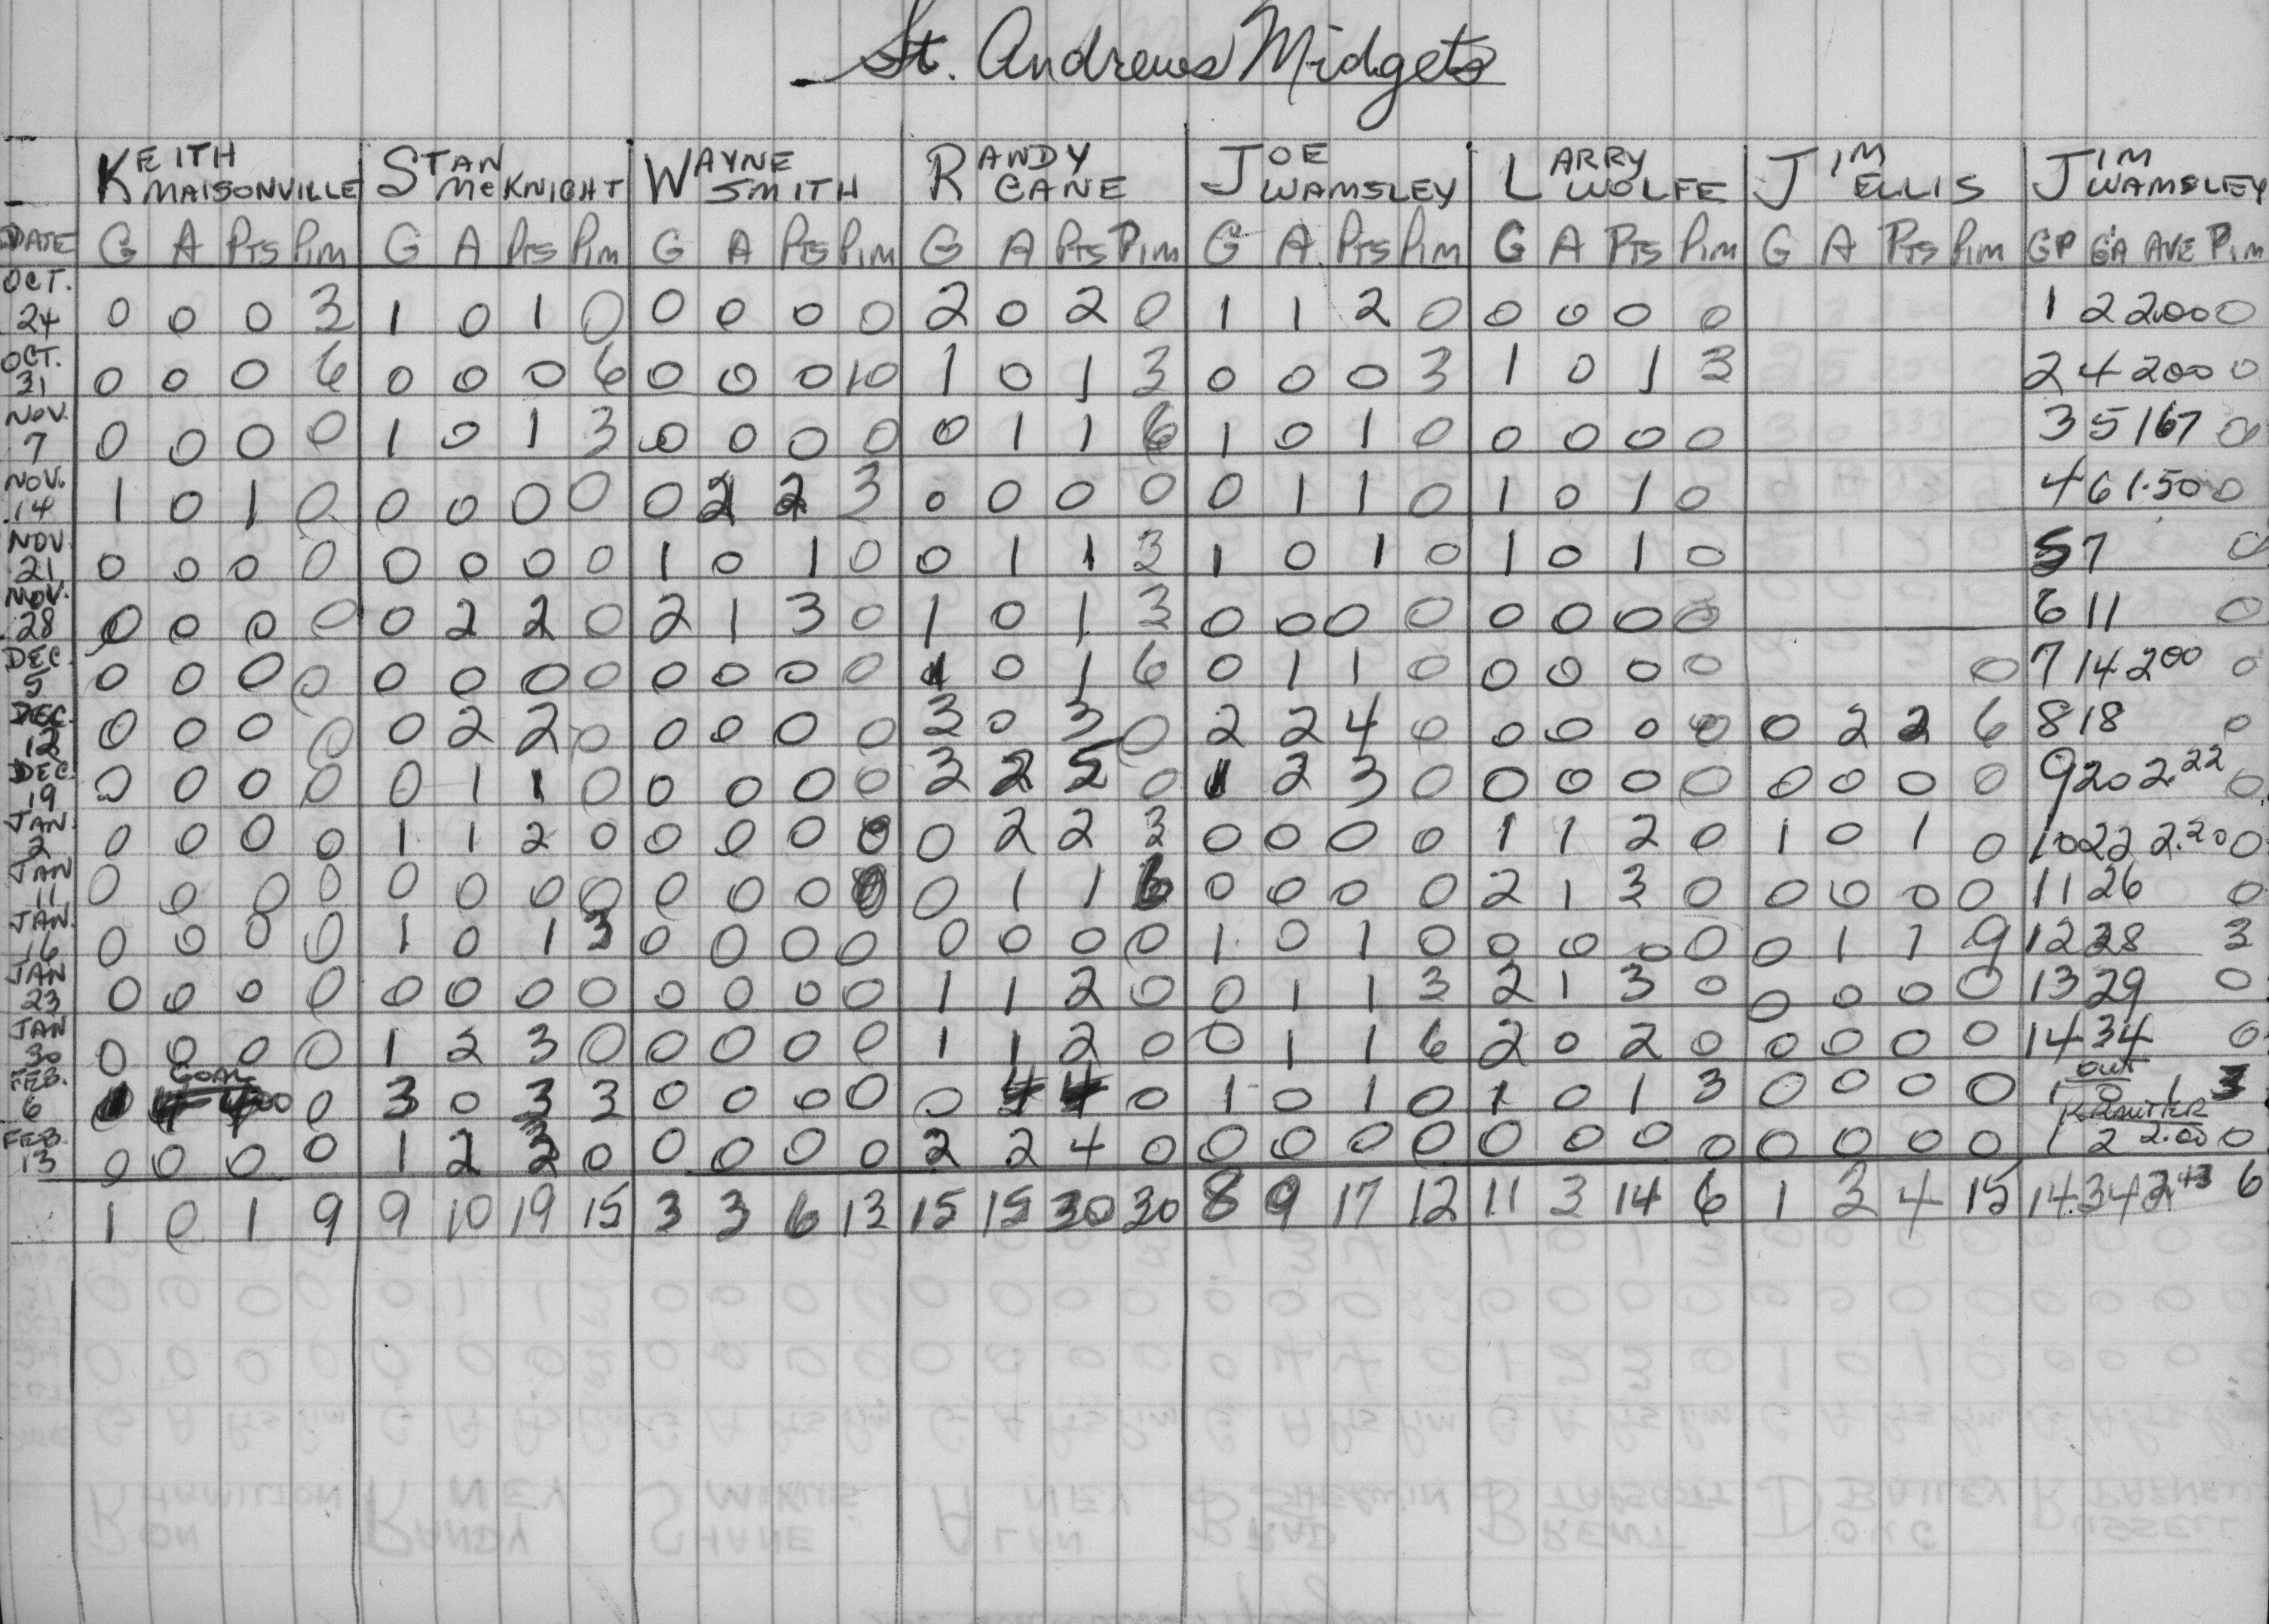 St. Andrews Midgets
KEITH MAISONVILLE STAN McKNIGHT WAYNE SMITH RANDY CANE JOE WAMSLEY LARRY WOLFE JIM ELLIS JIM WAMSLEY
DATE G A PTS PIM G A PTS PIM G A PTS PIM G A PTS PIM G A PTS PIM G A PTS PIM G A PTS PIM GP GA AVE PIM
OCT. 24 0 0 0 3 1 0 1 0 0 0 0 0 2 0 2 0 1 1 2 0 0 0 0 0 1 2 2.00 0
OCT. 31 0 0 0 6 0 0 0 6 0 0 0 10 1 0 1 3 0 0 0 3 1 0 1 3 2 4 200 0
NOV. 7 0 0 0 0 1 0 1 3 0 0 0 0 0 1 1 6 1 0 1 0 0 0 0 0 3 5 167 0
NOV. 14 1 0 1 0 0 0 0 0 0 2 2 3 0 0 0 0 0 1 1 0 1 0 1 0 4 6 1.50 0
NOV. 21 0 0 0 0 0 0 0 0 1 0 1 0 0 1 1 3 1 0 1 0 1 0 1 0 5 7 0
NOV. 28 0 0 0 0 0 2 2 0 2 1 3 0 1 0 1 3 0 0 0 0 0 0 0 0 6 11 0
DEC. 5 0 0 0 0 0 0 0 0 0 0 0 0 1 0 1 6 0 1 1 0 0 0 0 0 0 7 14 200 0
DEC. 12 0 0 0 0 0 2 2 0 0 0 0 0 3 0 3 0 2 2 4 0 0 0 0 0 0 2 2 6 8 18 0
DEC. 19 0 0 0 0 0 1 1 0 0 0 0 0 3 2 5 0 1 2 3 0 0 0 0 0 0 0 0 0 9 20 2.22 0
JAN. 2 0 0 0 0 1 1 2 0 0 0 0 0 0 2 2 3 0 0 0 0 1 1 2 0 1 0 1 0 10 22 2.20 0
JAN 11 0 0 0 0 0 0 0 0 0 0 0 0 0 1 1 6 0 0 0 0 2 1 3 0 0 0 0 0 11 26 0
JAN. 16 0 0 0 0 1 0 1 3 0 0 0 0 0 0 0 0 1 0 1 0 0 0 0 0 0 1 1 9 12 28 3
JAN 23 0 0 0 0 0 0 0 0 0 0 0 0 1 1 2 0 0 1 1 3 2 1 3 0 0 0 0 0 13 29 0
JAN 30 0 0 0 0 1 2 3 0 0 0 0 0 1 1 2 0 0 1 1 6 2 0 2 0 0 0 0 0 14 34 0
FEB. 6 GOAL 0 3 0 3 3 0 0 0 0 0 4 4 0 1 0 1 0 1 0 1 3 0 0 0 0 1 out 1 3
FEB. 13 0 0 0 0 1 2 3 0 0 0 0 0 2 2 4 0 0 0 0 0 0 0 0 0 0 0 0 0 1 2 2.00 0
1 0 1 9 9 10 19 15 3 3 6 13 15 15 30 30 8 9 17 12 11 3 14 6 1 3 4 15 14 34 2.43 6